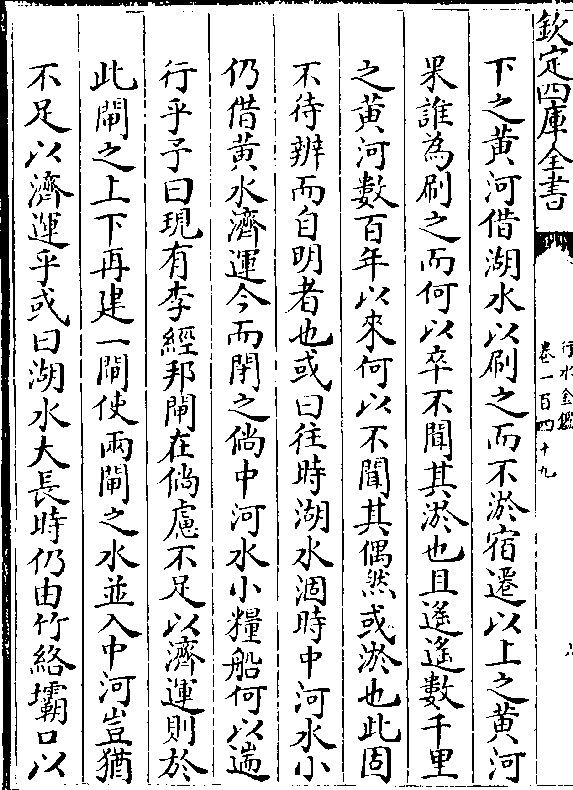 欽定四庫全書
行水金鑑
卷一百四十九
下之黄河借湖水以刷之而不淤宿遷以上之黄河
果誰為刷之而何以卒不聞其淤也且遥遥數千里
之黄河數百年以來何以不聞其偶然或淤也此固
不待辨而自明者也或曰往時湖水涸時中河水小
仍借黄水濟運今而閉之倘中河水小糧船何以遄
行乎予曰現有李經邦閘在倘慮不足以濟運則於
此閘之上下再建一閘使兩閘之水並入中河豈猶
不足以濟運乎或曰湖水大長時仍由竹絡壩口以